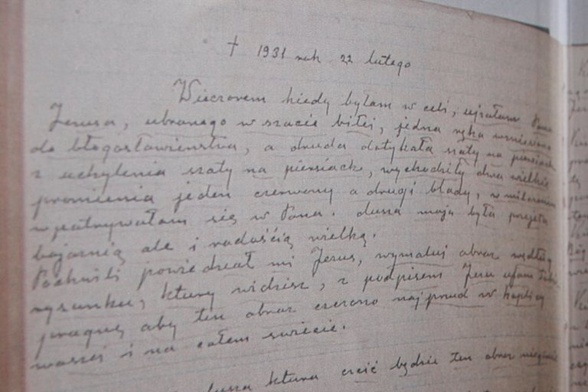 † 1931 rok 22 lutego
Wieczorem kiedy byłam w celi, ujrałam Pana
Jezusa, ubranego w szacie białej, jedna ręka wzniesiona
do błogosławieństwa, a druga dotykała szaty na piersiach
z uchylenia szaty na piersiach, wychodziły dwa wielkie
promienia jeden czerwony a drugi blady, w milczeniu
wpatrywałam się w Pana. dusza moja była przejęta
bojaznią ale i radością wielką.
Po chwili powiedział mi Jezus, wymaluj obraz według
rysunku, ktury widzisz, z podpisem Jezu ufam Tobie
pragnę aby ten obraz czczono najprzud w kaplicy
waszej i na całem świecie.
dusza ktura czcić będzie ten obraz